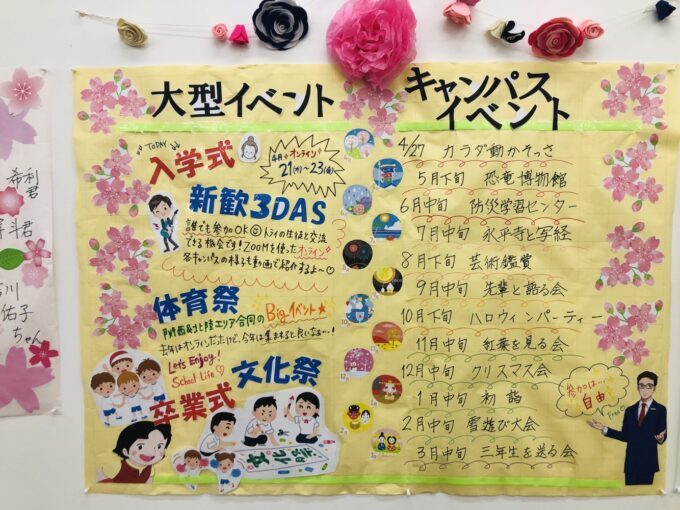 大型イベント
TODAY
入学式
4月 オンライン
21(水)~23(金)
新歓3DAS
誰でも参加OK トライの生徒と交流
できる機会です!ZOOMを使ったオンライン
各キャンパスの様子も動画で紹介するよ~
体育祭
関西&北陸エリア合同のBigイベント
去年はオンラインだったけど、今年は集まれると良いなぁ…!
Let's Enjoy!
School Life
文化祭
卒業式
文化祭
キャンパス
イベント
4/27 カラダ動かそっさ
5月下旬 恐竜博物館
6月中旬 防災学習センター
7月中旬 永平寺と写経
8月下旬 芸術鑑賞
9月中旬 先輩と語る会
10月下旬 ハロウィンパーティー
11月中旬 紅葉を見る会
12月中旬 クリスマス会
1月中旬 初詣
2月中旬 雪遊び大会
3月中旬 三年生を送る会
参加は…
自由
Free
希利
君
斗君
川
佑子
ちゃん